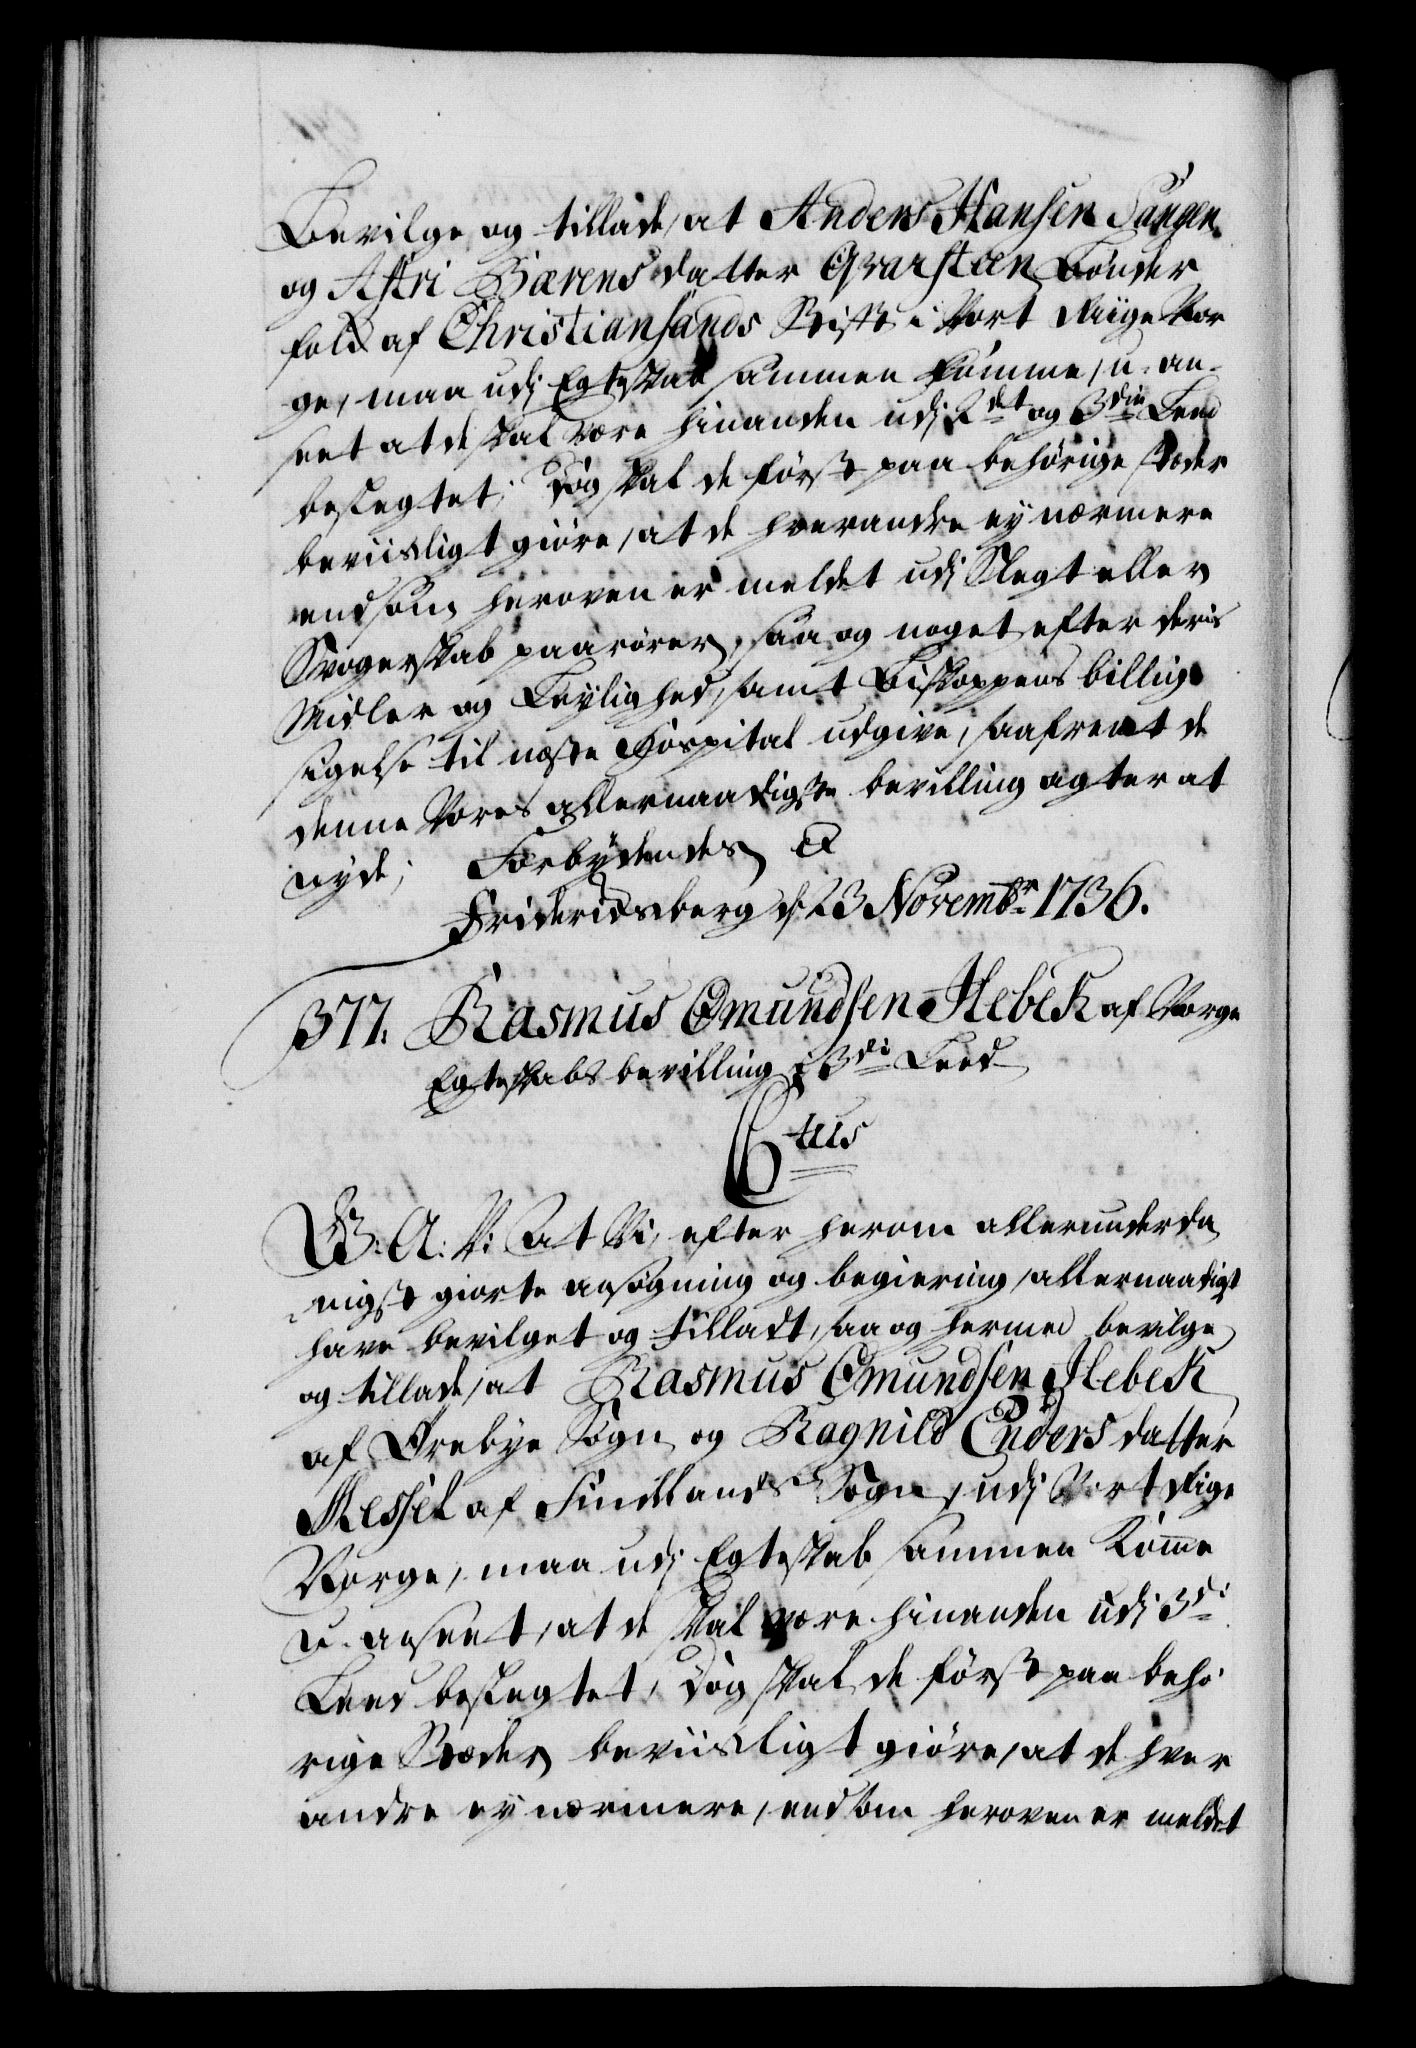 Bevilge og tillade, at Anders Hansen Saugen
og Astri Biørens datter Qvarsteen Bønder
folk af Christiansands Stift i Vort Riige Nor
ge, maa udj Egteskab sammen komme, u-an-
seet at de skal være hinanden udj 2det og 3die Leed
beslegtet; Dog skal de først paa behørige stæder
beviisligt giøre, at de hverandre ey nærmere
end som heroven er meldet udj Slegt eller
Svogerskab paarører, saa og noget efter deris
Midler og Leylighed, samt Biskoppens billige
sigelse til næste Hospital udgive, saafremt de
denne Vores allernaadigste bevilling agter at
nyde; Forbydendes &
Friderichsberg d. 23 Novembr 1736.
377. Rasmus Omundsen Hebek af Norge
Egteskabs bevilling i 3di Leed
C6tus
G: A: V: At Vi, efter herom allerunderda
nigst giorte ansøgning og begiering, allernaadigst
have bevilget og tilladt, saa og hermed bevilge
og tillade, at Rasmus Omundsen Hebek
af Ørebye Sogn og Ragnild Enders datter
Kessel af Findlands Sogn, udj Vort Rige
Norge, maa udj Egteskab sammen komme
u-anseet, at de skal være hinanden udi 3di
Leed beslegtet, Dog skal de først paa behø
rige Stæder beviisligt giøre, at de hver
andre ey nærmere, end som heroven er meldet